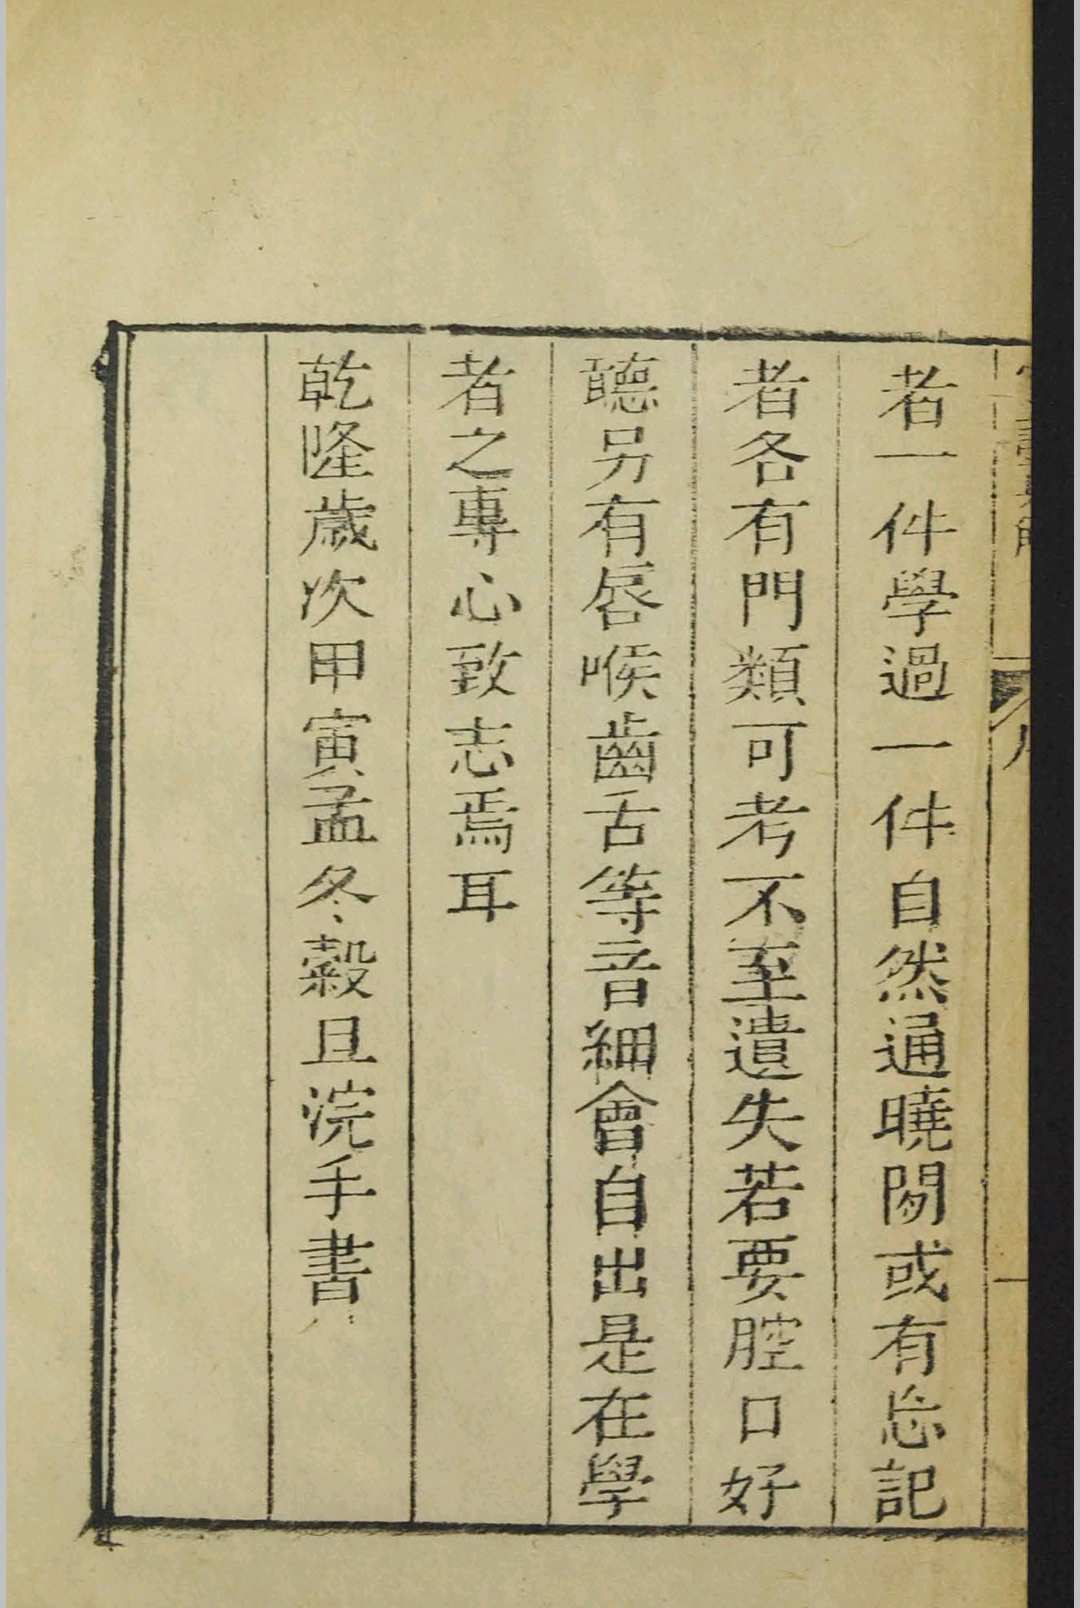 者一件學過一件自然通曉閱或有忘記
者各有門類可考不至遺失若要腔口好
聽另有唇喉齒舌等音細會自出是在學
者之專心致志焉耳
乾隆歲次甲寅孟冬穀旦浣手書